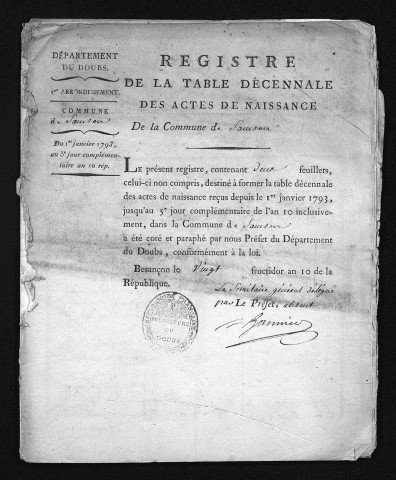 DÉPARTEMENT
DU DOUBS.
1er ARRONDISSEMENT.
COMMUNE
de Samson
Du 1er janvier 1793,
au 5e jour complémen-
taire an 10 rép.
REGISTRE
DE LA TABLE DÉCENNALE
DES ACTES DE NAISSANCE
De la Commune de Samson
LE présent registre, contenant deux feuillets,
celui-ci non compris, destiné à former la table décennale
des actes de naissance reçus depuis le 1er janvier 1793,
jusqu'au 5e jour complémentaire de l'an 10 inclusive-
ment, dans la Commune de Samson
a été coté et paraphé par nous Préfet du Département
du Doubs, conformément à la loi.
Besançon le Vingt fructidor an 10 de la
République.
Le Secrétaire général délégué
par Le Préfet, absent
DOUBS